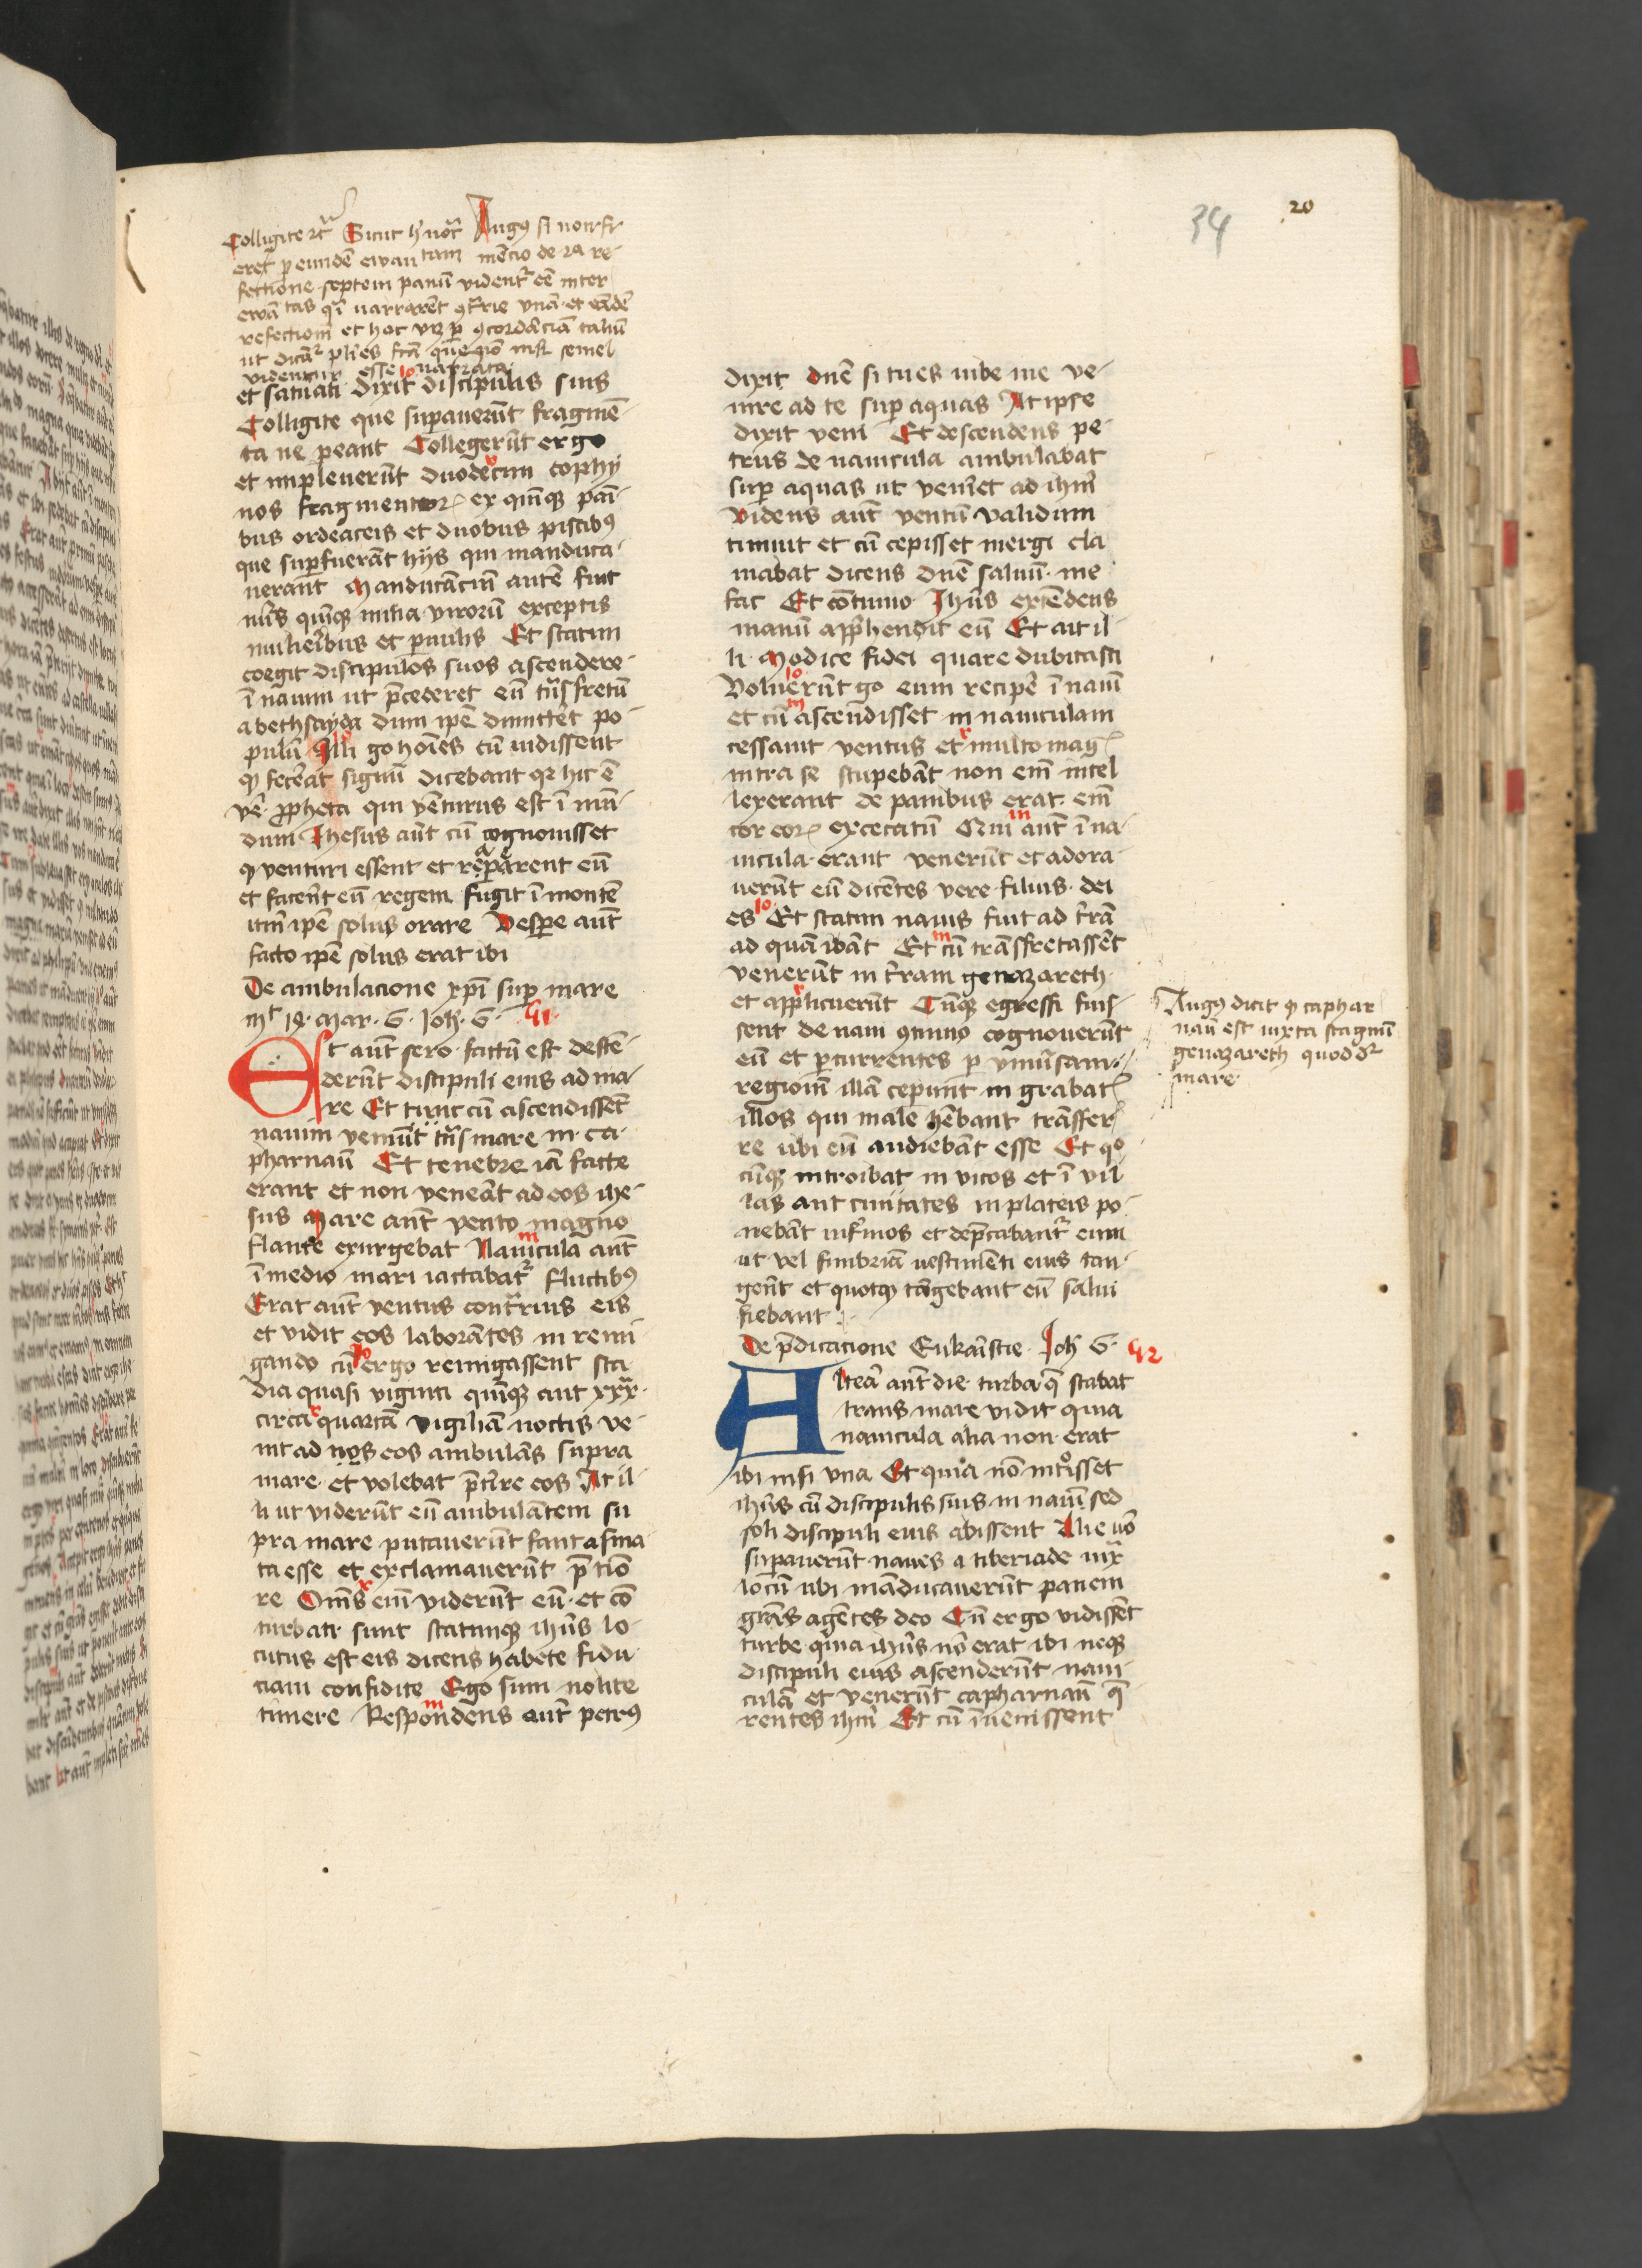 34
20
Colligite etc̄ Sicut h' notat̄ Augꝰ si non fi-
eret ꝑ eundē ewan tam mēcio de 2a re-
fectione septem panū videnr̄ eē inter
ewā tas qd̄ narrarent ꝯtrie vnā et eādē
refectionē et hoc vꝫ ꝑ ꝯcordāciā taliū
ut dicāt̄ pl'ies fcā que nō nisi semel
videntur esse narrata
et saturati dixit discipulis suis
lo
Colligite que supauerūt fragmē-
ta ne ꝑeant Collegerūt ergo
et impleuerūt duodecim cophy
nos fragmentoꝝ ex quinqꝫ pani-
bus ordeaceis et duobus piscibꝰ
que supfuerāt hijs qui manduca-
uerant Manducāciū autē fuit
nūs quinqꝫ milia virorū exceptis
mulieribus et ꝑuulis Et statim
coegit discipulos suos ascendere
ī nauim ut p̄cederet eū trās fretū
a bethsayda dum ipē dimitteret po-
pulū Illi go hoīes cū uidissent
qꝫ fecerat signū dicebant qꝛ hic ē
vē ꝓpheta qui venturus est ī mū-
dum Ihesus aūt cū cognouisset
qꝫ venturi essent et raperent eū
et facerēt eū regem fugit ī montē
itm̄ ipē solus orare Vespere aūt
facto ipē solus erat ibi
De ambulacione xp̄i sup mare
mt 14 mar 6 Joh 6 41
Et aūt sero factū est descē-
derūt discipuli eius ad ma-
re Et tunc cū ascendissēt
nauim veniūt trās mare in ca-
pharnaū Et tenebre iā facte
erant et non veneāt ad eos ihe-
sus Mare aūt vento magno
flante exurgebat Nauicula aūt
m
ī medio mari iactabatr̄ fluctibꝰ
Erat aūt ventus contrarius eis
et vidit eos laborātes in remi
gando cū ergo remigassent sta
lo
dia quasi viginti quīqꝫ aut xxx
circa quartā vigiliā noctis ve-
nit ad nos eos ambulās supra
mare et volebat p̄terire eos At il-
li ut viderūt eū ambulātem su
pra mare putauerūt fantasma
ta esse et exclamauerūt p̄ timo
re Oms̄ eim̄ viderūt eū et cō
turbati sunt statimqꝫ ihūs lo-
cutus est eis dicens habete fidu-
ciam confidite Ego sum nolite
timere Respondens aūt petrꝰ
m
dixit dnē si tu es iube me ve-
nire ad te sup aquas At ipse
dixit veni Et descendens pe-
trus de nauicula ambulabat
sup aquas ut veniret ad ihm̄
videns aūt ventū validum
timuit et cū cepisset mergi cla
mabat dicens dnē saluū me
fac Et cōtinuo Ihūs extēdens
manū app̄hendit eū Et ait il-
li Modice fidei quare dubitasti
lo
Voluerūt go eum recipe ī nauī
m
et cū ascendisset in nauiculam
cessauit ventus et multo magꝭ
intra se stupebāt non em̄ intel
lexerant de panibus erat em̄
cor eoꝝ excecatū Qui aūt ī na-
m
uicula erant venerūt et adora-
uerūt eū dicētes vere filius dei
es Et statim nauis fuit ad t'rā
lo
ad quā ibāt Et cū trāsfretassēt
m
venerūt in t'ram genazareth
et applicuerūt Cūqꝫ egressi fuis-
sent de naui ꝯtinuo cognouerūt
eū et ꝑcurrentes ꝑ vniūsam
regionē illā ceperunt in grabatꝭ
illos qui male hēbant trāsfer-
re ubi eū audiebāt esse Et qo-
cūqꝫ introibat in vicos et ī vil
las aut ciuitates in plateis po-
nebāt infirmos et dep̄cabantr̄ eum
ut vel fimbriā uestimēti eius tan-
gerēt et quotqꝫ tāgebant eū salui
fiebant
De p̄dicatione Eukaristie Joh 6 42
Altera aūt die turba q̄ stabat
trans mare vidit quia
nauicula alia non erat
ibi nisi vna Et quia nō introisset
ihūs cū discipulis suis in nauī sed
soli discipuli eius abissent Alie uō
supauerūt naues a tiberiade iuxͣ
locū ubi māducauerūt panem
grās agētes deo Cū ergo vidissēt
turbe quia ihūs nō erat ibi neqꝫ
discipuli eius ascenderūt naui-
culā et venerūt capharnaū q̄-
rentes ihm̄ Et cū īuenissent
Augꝰ dicit qꝫ caphar
naū est iuxta stagnū
genazareth quod dr̄
mare